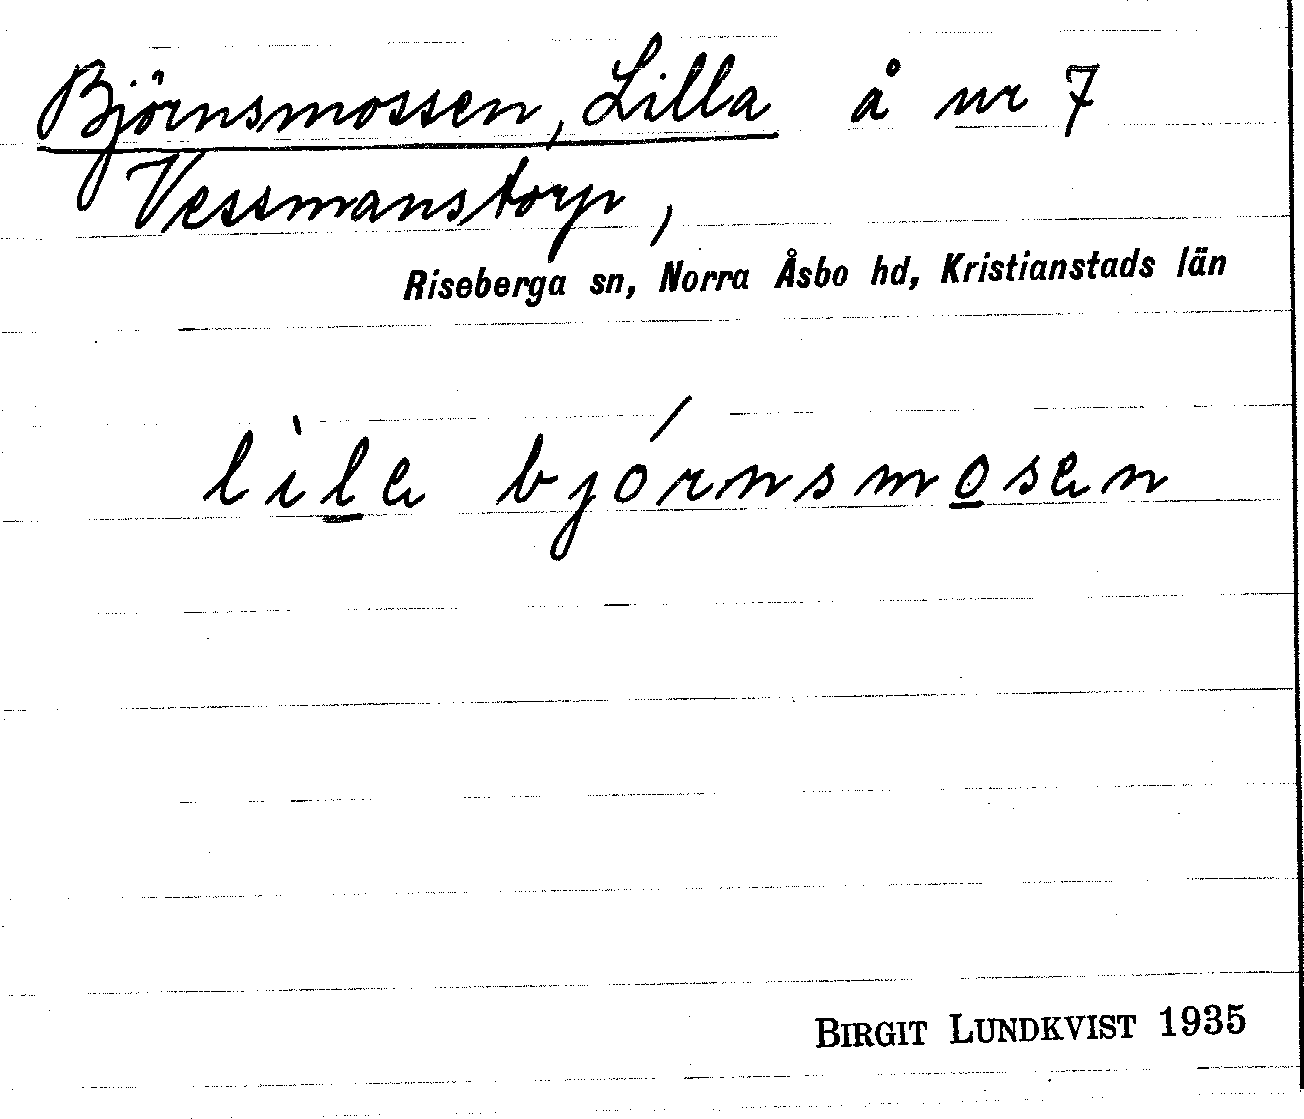 Björnsmossen, Lilla å nr 7
Vessmanstorp,
Riseberga sn, Norra Åsbo hd, Kristianstads län
lìla bjórnsmosan
BIRGIT LUNDKVIST 1935